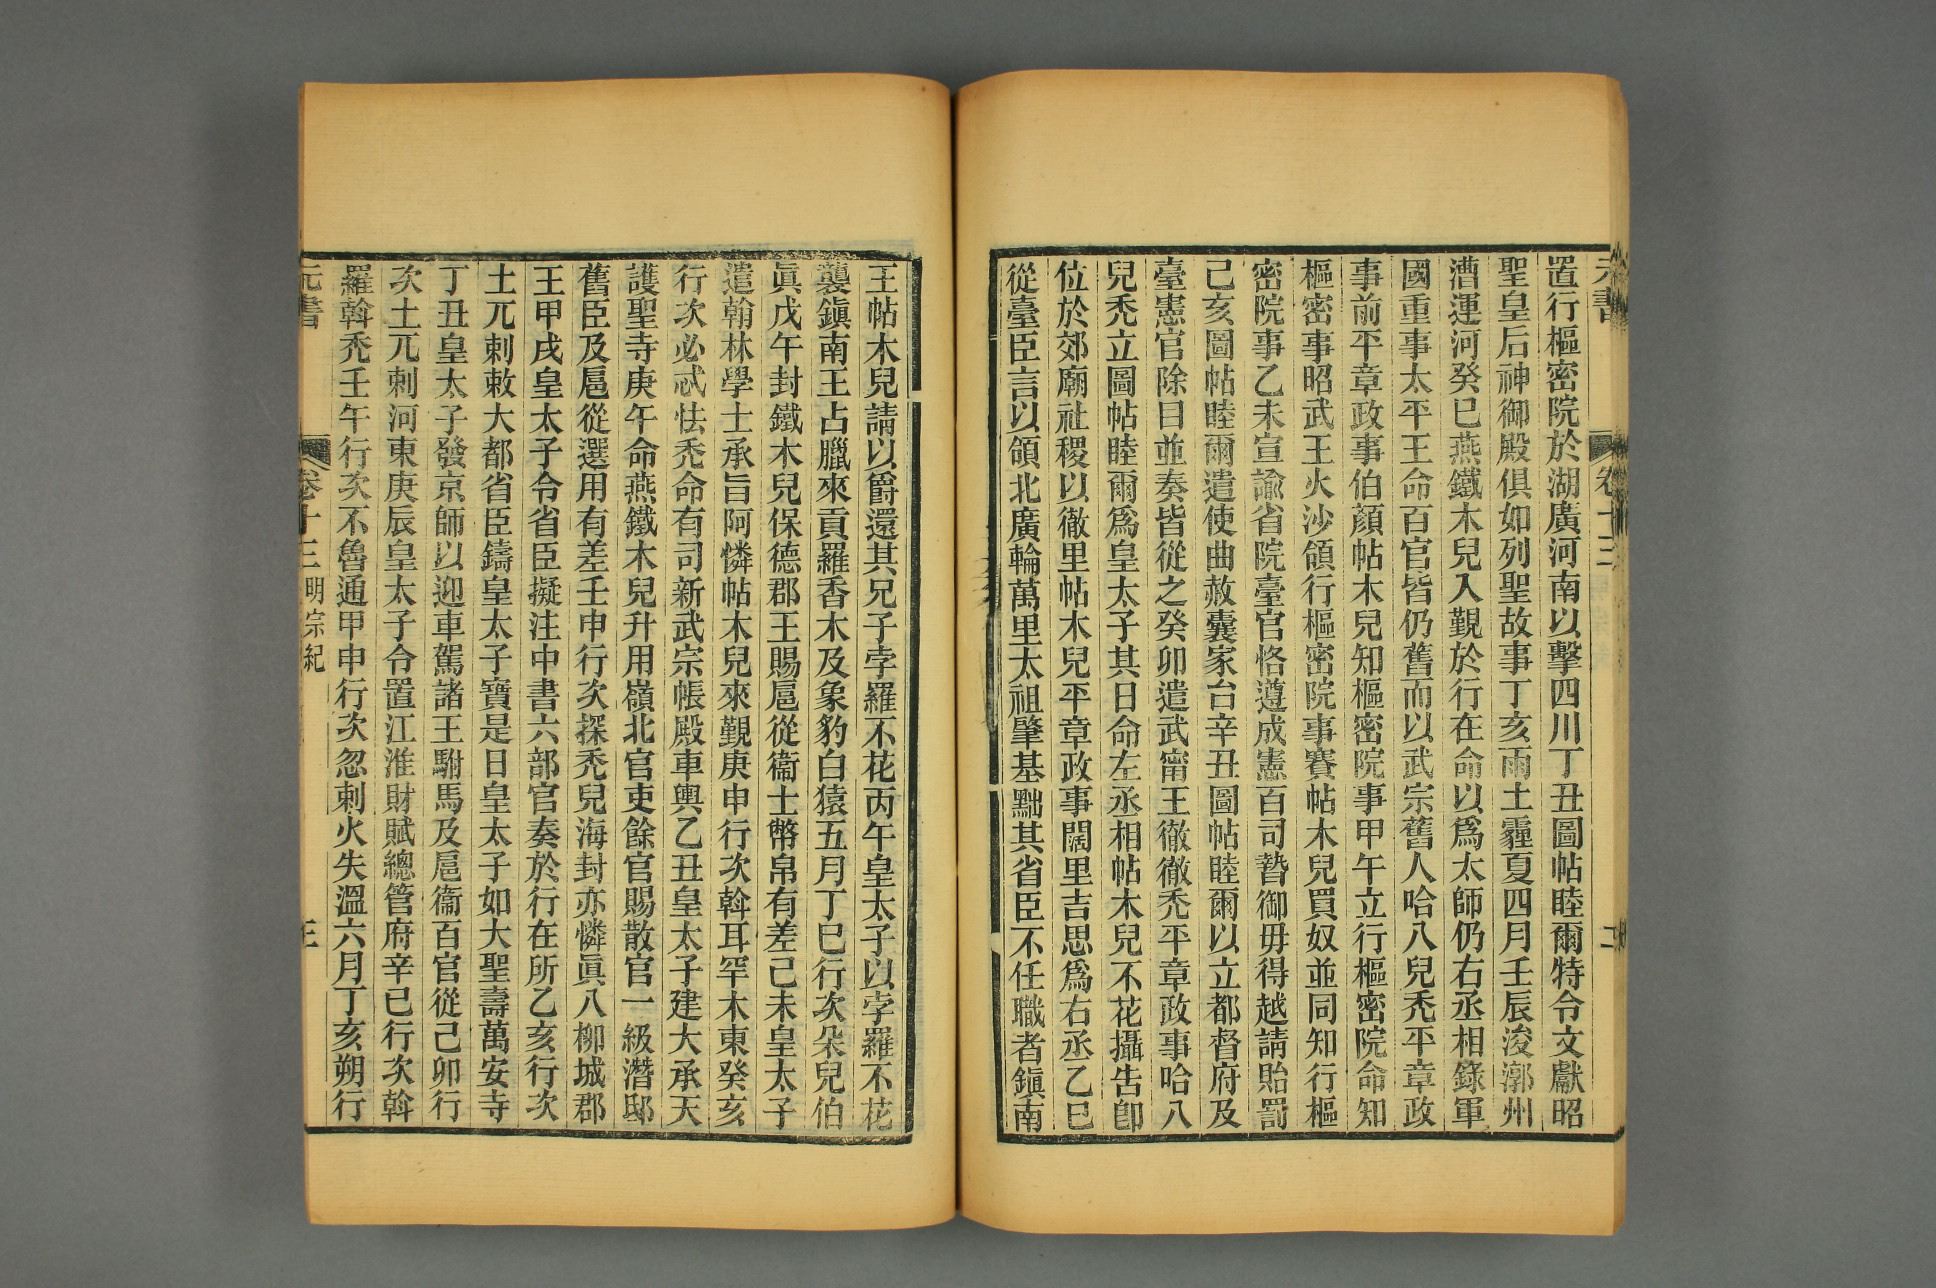 元書
卷十三
二
置行樞密院於湖廣河南以擊四川丁丑圖帖睦爾特令文獻昭
聖皇后神御殿俱如列聖故事丁亥雨土霾夏四月壬辰浚漷州
漕運河癸巳燕鐵木兒入覲於行在命以爲太師仍右丞相錄軍
國重事太平王命百官皆仍舊而以武宗舊人哈八兒禿平章政
事前平章政事伯顏帖木兒知樞密院事甲午立行樞密院命知
樞密事昭武王火沙領行樞密院事賽帖木兒買奴並同知行樞
密院事乙未宣諭省院臺官恪遵成憲百司贄御毋得越請貽罰
己亥圖帖睦爾遣使曲赦囊家台辛丑圖帖睦爾以立都督府及
臺憲官除目並奏皆從之癸卯遣武甯王徹徹禿平章政事哈八
兒禿立圖帖睦爾爲皇太子其日命左丞相帖木兒不花攝告卽
位於郊廟社稷以徹里帖木兒平章政事闊里吉思爲右丞乙巳
從臺臣言以領北廣輪萬里太祖肇基黜其省臣不任職者鎭南
王帖木兒請以爵還其兄子孛羅不花丙午皇太子以孛羅不花
襲鎭南王占臘來貢羅香木及象豹白猿五月丁巳行次朵兒伯
眞戊午封鐵木兒保德郡王賜扈從衞士幣帛有差己未皇太子
遣翰林學士承旨阿憐帖木兒來覲庚申行次斡耳罕木東癸亥
行次必忒怯禿命有司新武宗帳殿車輿乙丑皇太子建大承天
護聖寺庚午命燕鐵木兒升用嶺北官吏餘官賜散官一級潛邸
舊臣及扈從選用有差壬申行次探禿兒海封亦憐眞八柳城郡
王甲戌皇太子令省臣擬注中書六部官奏於行在所乙亥行次
土兀剌敕大都省臣鑄皇太子寶是日皇太子如大聖壽萬安寺
丁丑皇太子發京師以迎車駕諸王駙馬及扈衞百官從己卯行
次土兀剌河東庚辰皇太子令置江淮財賦總管府辛巳行次斡
羅斡禿壬午行次不魯通甲申行次忽剌火失溫六月丁亥朔行
元書
卷十三
明宗紀
三